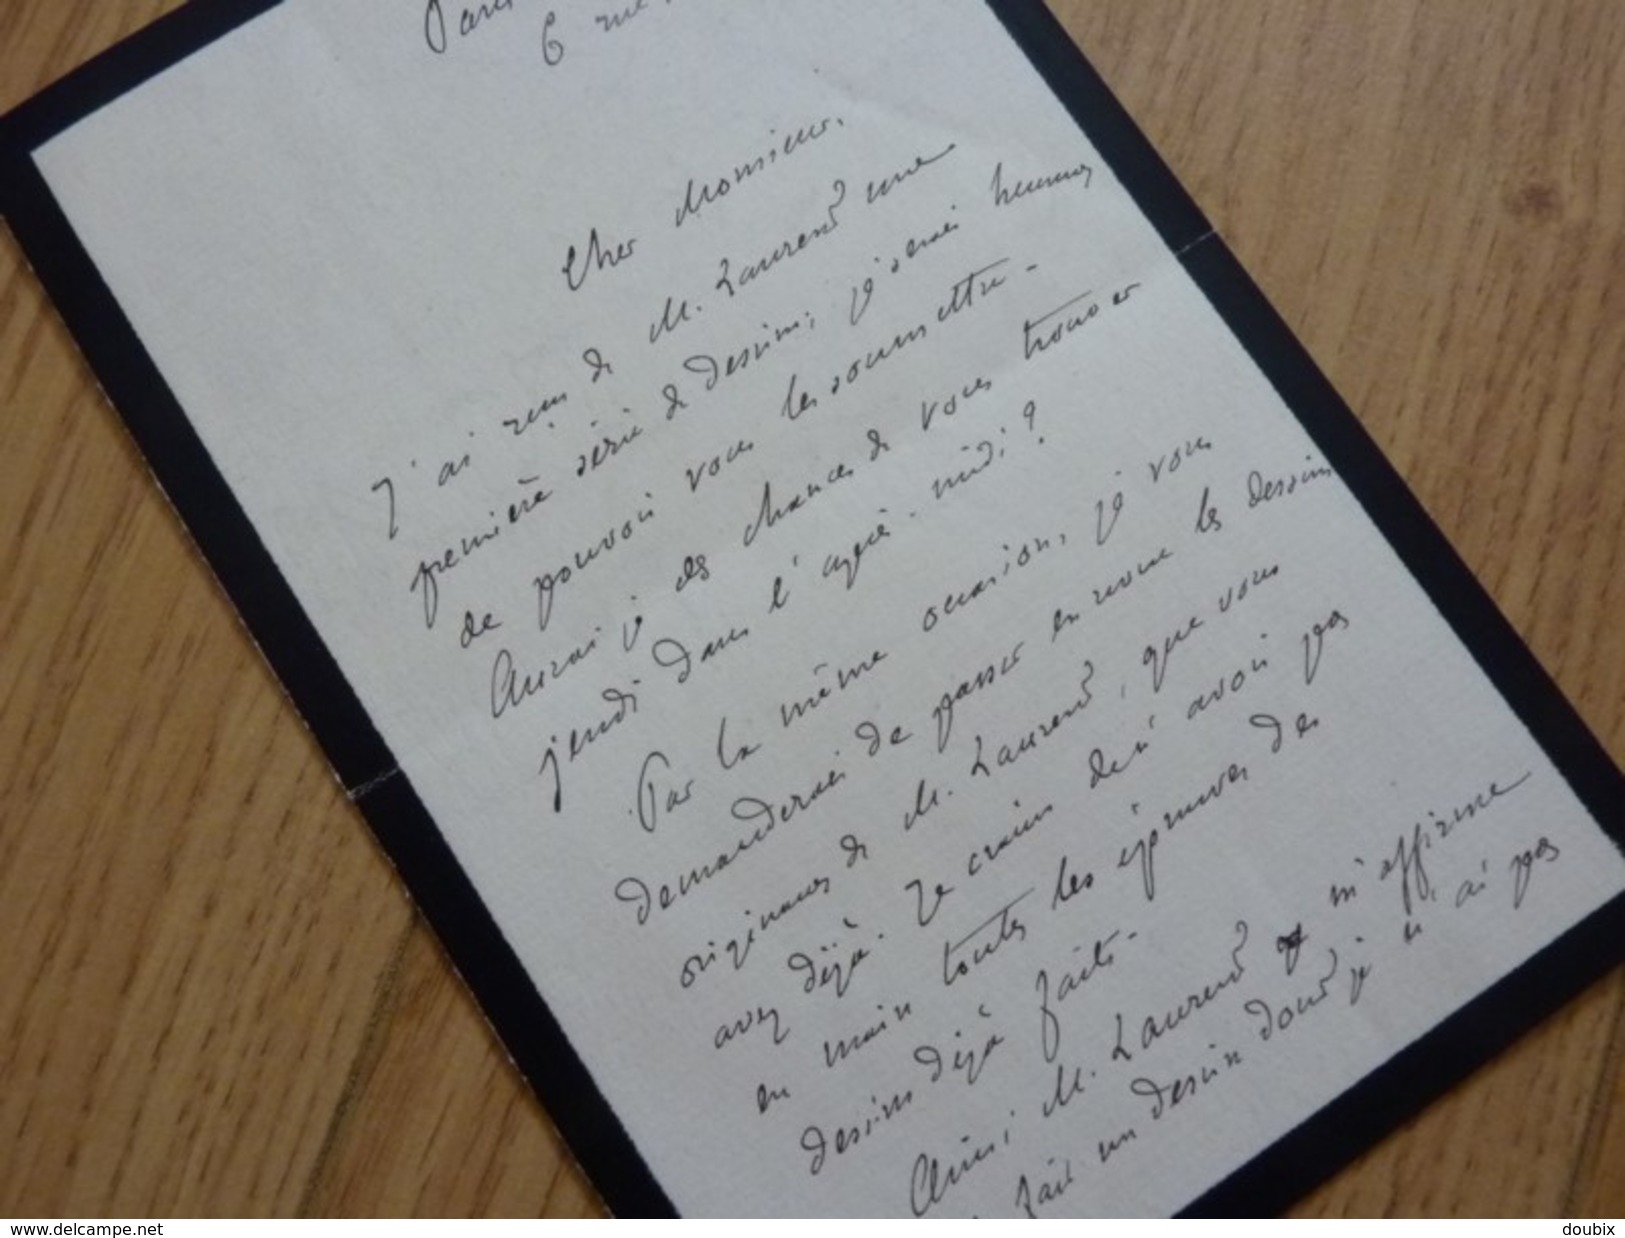 Paris
6 rue
Cher Monsieur.
J'ai reçu de M. Laurend une
première série de dessins; je serai heureux
de pouvoir vous les soumettre.
Aurai je des chances de vous trouver
jeudi dans l'après-midi?
Par la même occasion, je vous
demanderai de passer en revue les dessins
originaux de M. Laurend, que vous
avez déjà. Je crains de n'avoir pas
en main toutes les épreuves des
dessins déjà faits.
Ainsi M. Laurend m'affirme
fait un dessin dont je n'ai pas
www.delcampe.net
doubix